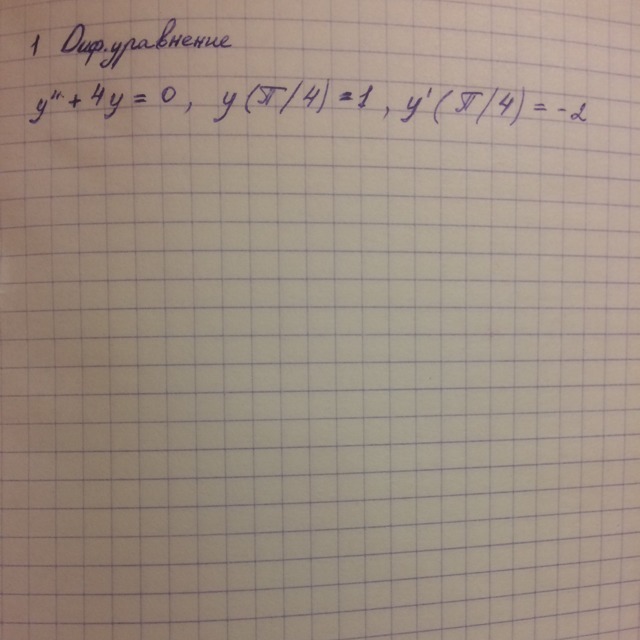 1 Диф.уравнение
y'' + 4y = 0, y(π/4) = 1, y'(π/4) = -2